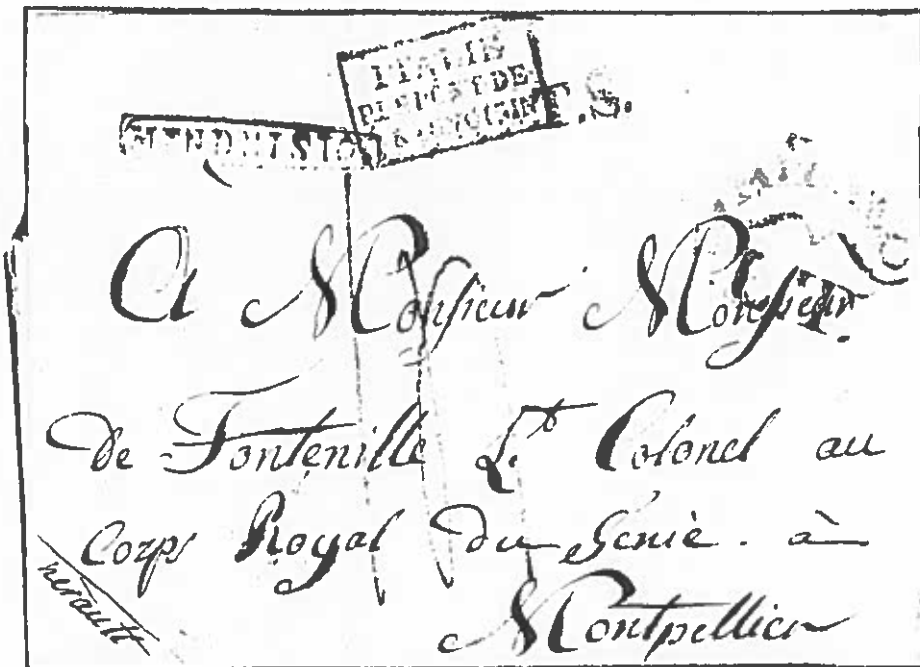 P.S.
A Monsieur Monsieur
de Fontenille Lt Colonel au
Corps Royal du Génie. à
Montpellier
herault